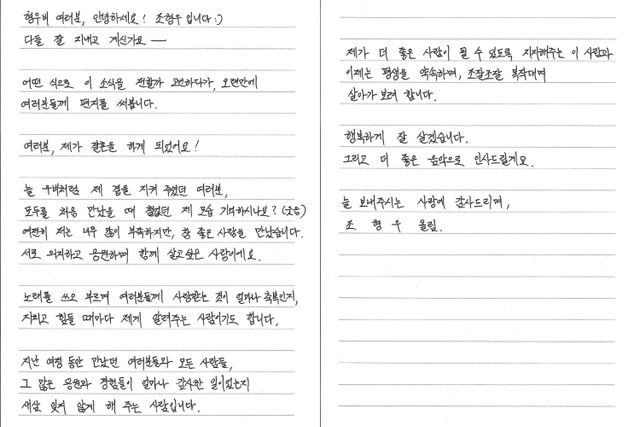 형우비 여러분, 안녕하세요! 조형우입니다:)
다들 잘 지내고 계신가요 —
어떤 식으로 이 소식을 전할까 고민하다가, 오랜만에
여러분들께 편지를 써봅니다.
여러분, 제가 결혼을 하게 되었어요!
늘 우비처럼 제 곁을 지켜 주셨던 여러분,
모두를 처음 만났을 때 철없던 제 모습 기억하시나요? (웃음)
여전히 저는 너무 많이 부족하지만, 참 좋은 사람을 만났습니다.
서로 의지하고 응원하며 함께 살고싶은 사람이에요.
노래를 쓰고 부르며 여러분들께 사랑받는 것이 얼마나 축복인지,
지치고 힘들 때마다 제게 알려주는 사람이기도 합니다.
지난 여정 동안 만났던 여러분들과 모든 사람들,
그 많은 응원과 경험들이 얼마나 감사한 일이었는지
새삼 잊지 않게 해 주는 사람입니다.
제가 더 좋은 사람이 될 수 있도록 지지해주는 이 사람과
이제는 평생을 약속하며, 조잘조잘 복작대며
살아가 보려 합니다.
행복하게 잘 살겠습니다.
그리고 더 좋은 음악으로 인사드릴게요.
늘 보내주시는 사랑에 감사드리며,
조 형 우 올림.